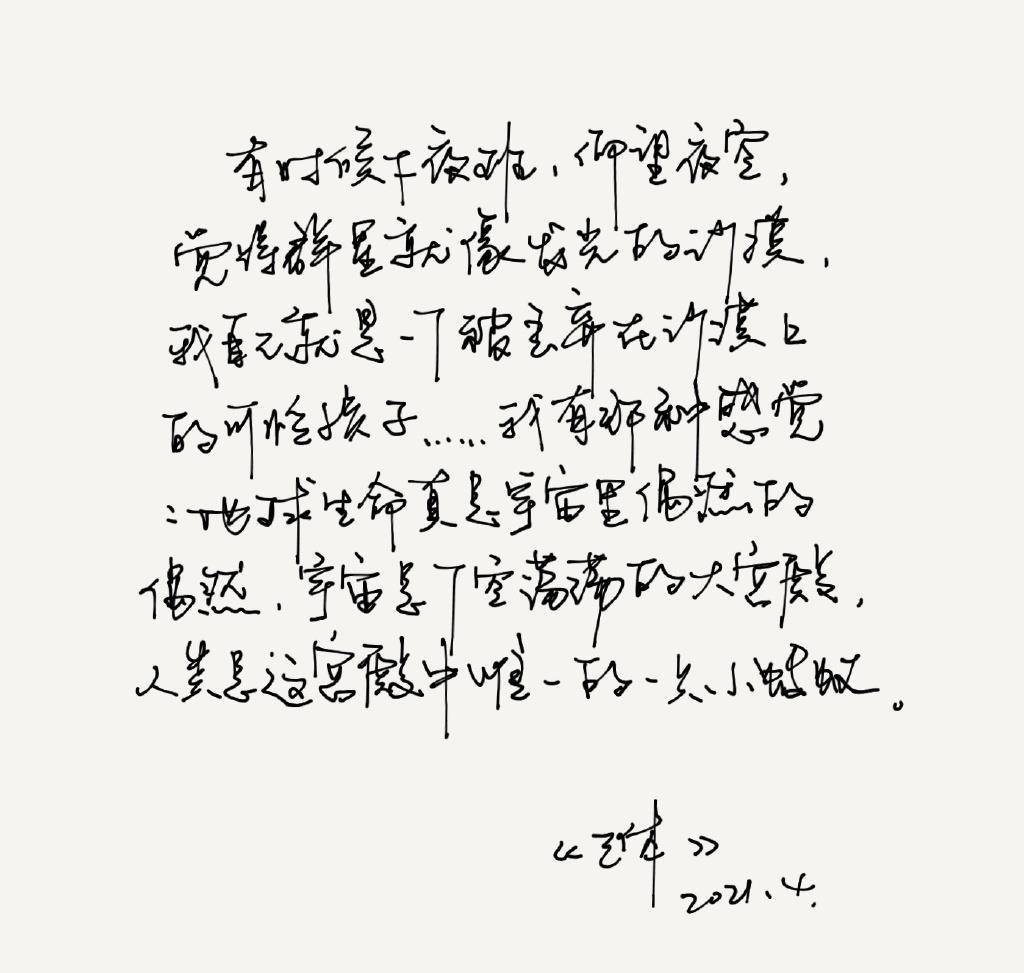 有时候下夜班，仰望夜空，
觉得群星就像发光的沙漠，
我自己就是一个被丢弃在沙漠上
的可怜孩子……我有那种感觉
：地球生命真是宇宙里偶然的
偶然，宇宙是个空荡荡的大宫殿，
人类是这宫殿中唯一的一只小蚂蚁。
《三体》
2021.4.